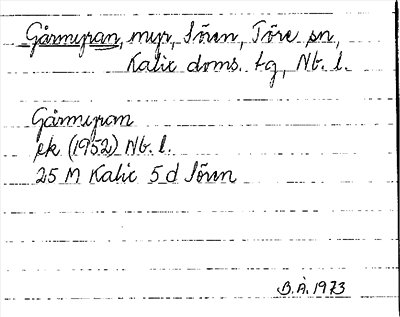 Gårmyran, myr, Sören, Töre sn,
Kalix doms. tg, Nb. l.
Gårmyran
ek (1952) Nb. l.
25 M Kalix 5 d Sören
B.Å. 1973